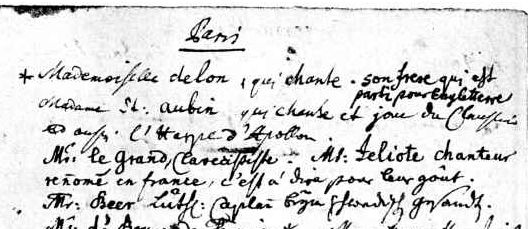 Paris
* Mademoiselle delon, qui chante. son frere qui est
parti pour Engletterre
Madame St: aubin qui chante et joue du Clavessin
aussi l'Harpe d'Apollon.
Mr: le grand, Clavecinist. Mr: Jeliote chanteur
renomé en france, c'est à dire pour leur goût.
Mr: Beer Luth: Caplan beym